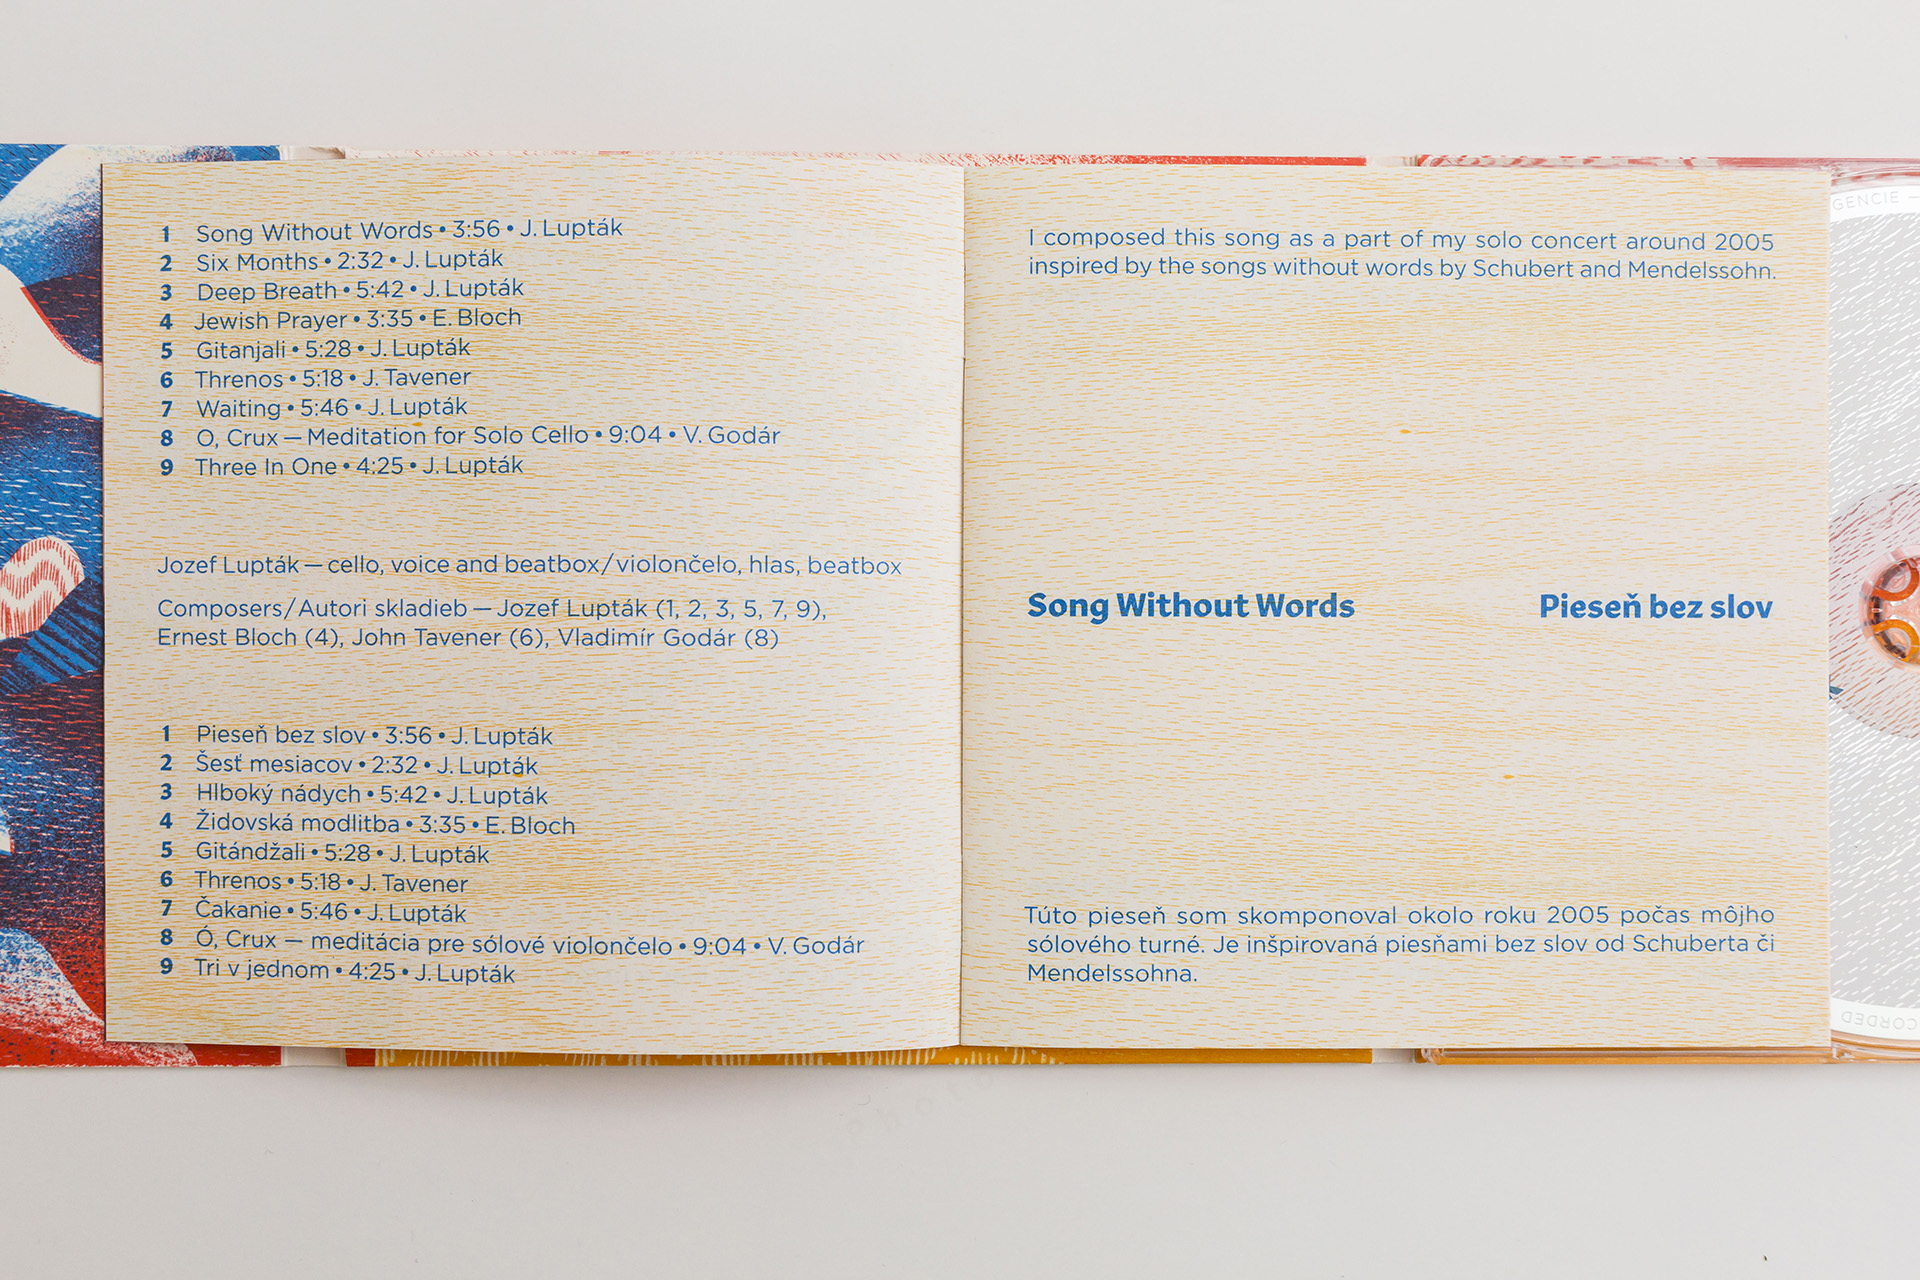 1 Song Without Words • 3:56 • J. Lupták
2 Six Months • 2:32 • J. Lupták
3 Deep Breath • 5:42 • J. Lupták
4 Jewish Prayer • 3:35 • E. Bloch
5 Gitanjali • 5:28 • J. Lupták
6 Threnos • 5:18 • J. Tavener
7 Waiting • 5:46 • J. Lupták
8 O, Crux — Meditation for Solo Cello • 9:04 • V. Godár
9 Three In One • 4:25 • J. Lupták
Jozef Lupták — cello, voice and beatbox/violončelo, hlas, beatbox
Composers/Autori skladieb — Jozef Lupták (1, 2, 3, 5, 7, 9),
Ernest Bloch (4), John Tavener (6), Vladimír Godár (8)
1 Pieseň bez slov • 3:56 • J. Lupták
2 Šesť mesiacov • 2:32 • J. Lupták
3 Hlboký nádych • 5:42 • J. Lupták
4 Židovská modlitba • 3:35 • E. Bloch
5 Gitándžali • 5:28 • J. Lupták
6 Threnos • 5:18 • J. Tavener
7 Čakanie • 5:46 • J. Lupták
8 Ó, Crux — meditácia pre sólové violončelo • 9:04 • V. Godár
9 Tri v jednom • 4:25 • J. Lupták
I composed this song as a part of my solo concert around 2005
inspired by the songs without words by Schubert and Mendelssohn.
Song Without Words Pieseň bez slov
Túto pieseň som skomponoval okolo roku 2005 počas môjho
sólového turné. Je inšpirovaná piesňami bez slov od Schuberta či
Mendelssohna.